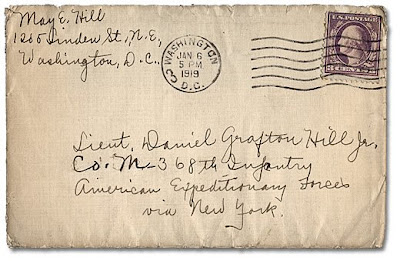 May E. Hill
1200 Linden St, N.E,
Washington, D.C.
WASHINGTON
JAN 6
5 PM
1919
D.C.
3
U.S. POSTAGE
Lieut. Daniel Grafton Hill Jr,
Co. M - 368th Infantry
American Expeditionary Forces
via New York.